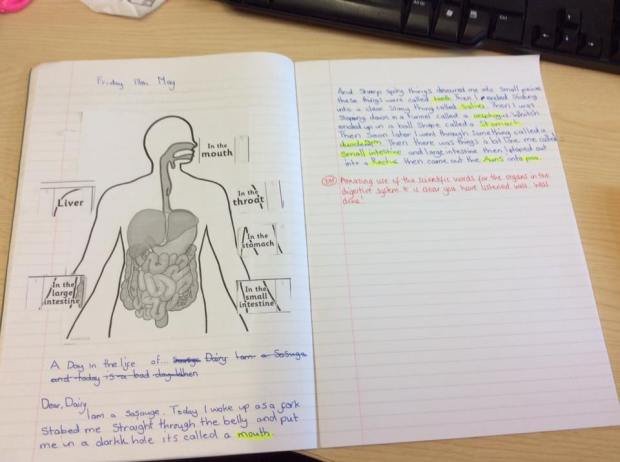 Friday 11th May
In the
mouth
Liver
In the
throat
In the
stomach
In the
large
intestine
In the
small
intestine
A Day in the life of... Dairy I am a Sosuge
and today is a bad day When
Dear, Dairy
I am a sasauge. Today I woke up as a fork
Stabed me Straight through the belly and put
me in a darkk hole its called a mouth.
And Sharp spiky things devoured me into small pieces
these things were called teeth. Then I ended Sliding
into a clear slimy thing called Saliva. Then I was
down a funnel called a oesphogus. Whitch
ended up in a ball Shape called a Stomach.
Then Soon later I went through Something called a
duodenem. Then there was things a bit like me called
Small intestine and large intestine then I plopped out
into a Rectus then came out the Anus into poo.
Amazing use of the scientific words for the organs in the
digestive system. It is clear you have listened well. Well
done!